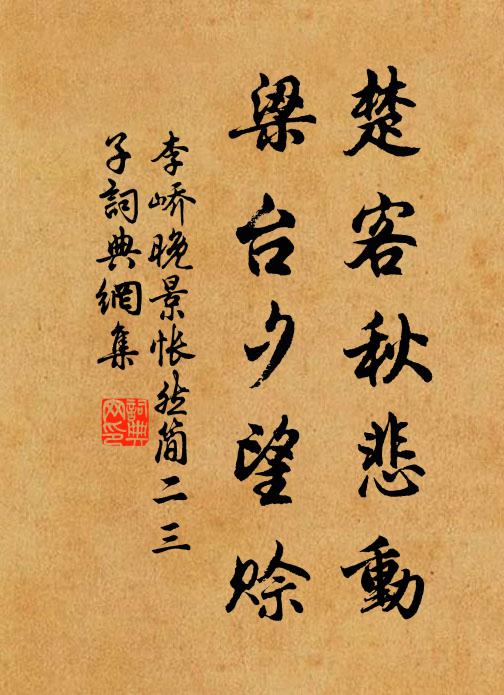 楚客秋悲動
梁台夕望賒
李嶠晚景悵然簡二三
子詞典網集
詞典
网印